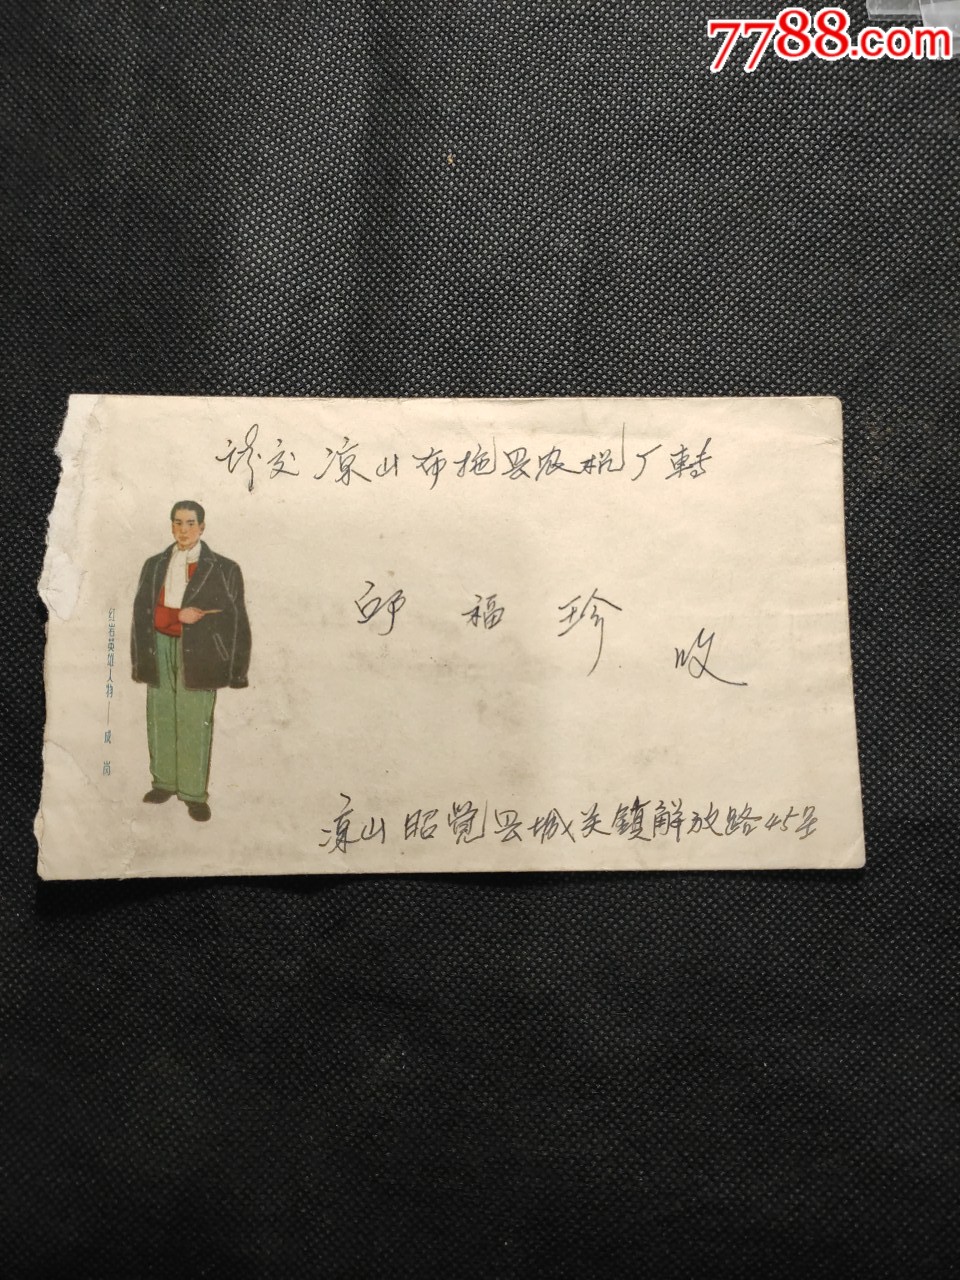 7788.com
请交凉山布拖县农机厂转
邱福珍
收
红岩英雄人物——成岗
凉山昭觉县城关镇解放路45号